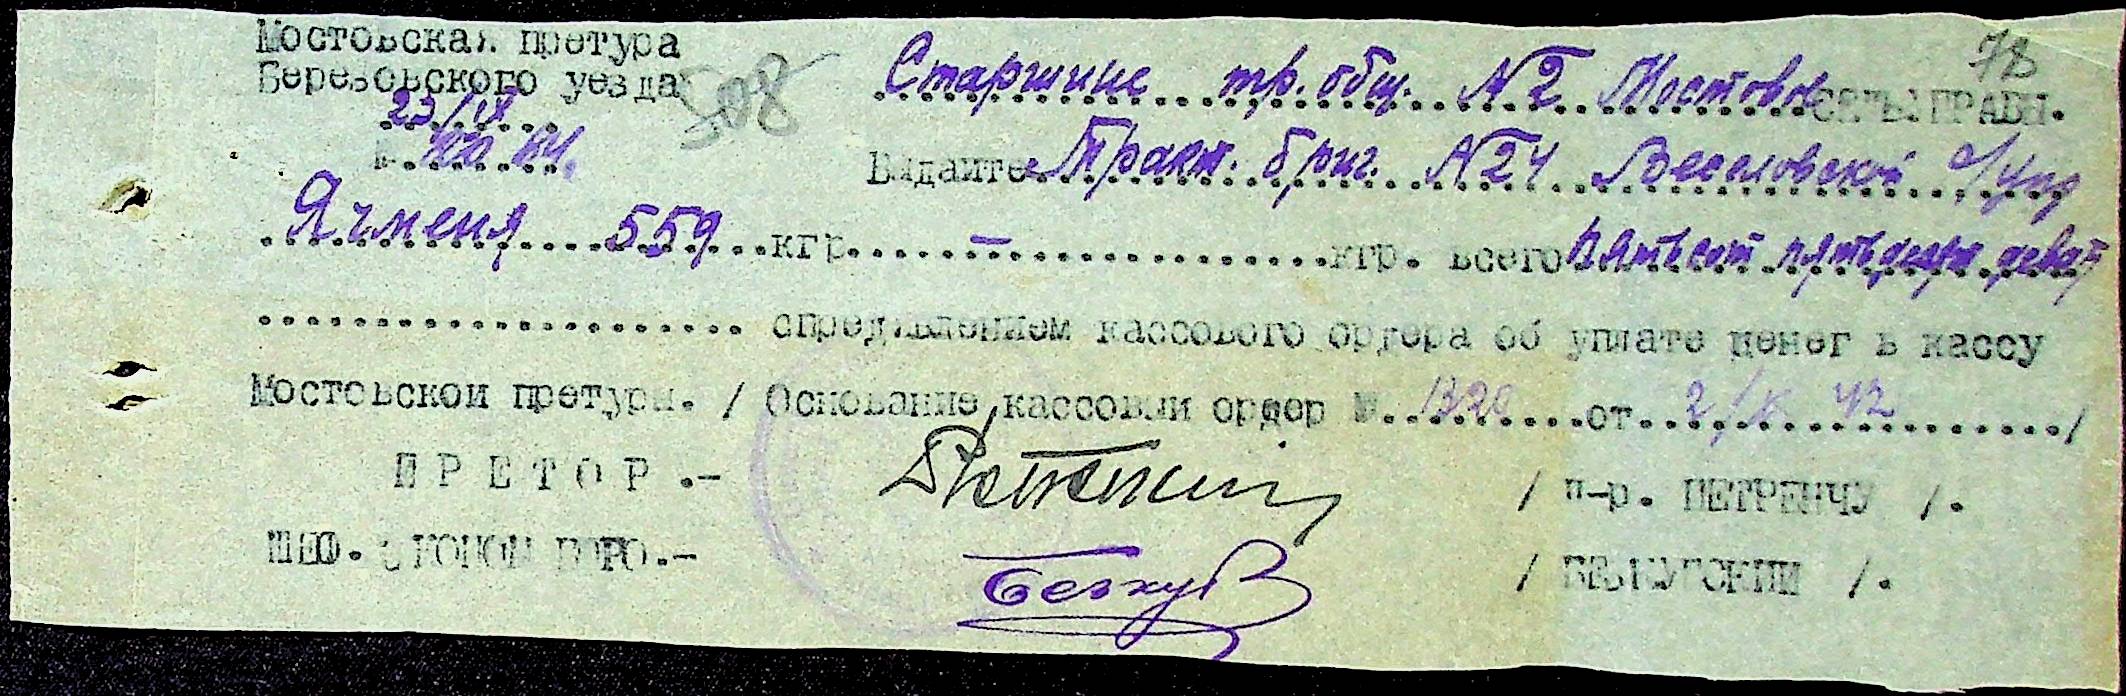 Мостовская претура
Березовского уезда
508
78
23/IX
Старшине тр. общ. №2 Мостовое СЕЛЬУПРАВЫ.
Выдайте Тракт. бриг. №24 Веселовской с/упр
Ячменя 559 кгр. – кгр. всего Пятьсот пятьдесят девять
спредявлением кассового ордера об уплате денег в кассу
Мостовской претуры. / Основание кассовый ордер №. 1320 от 2/X 42 /
ПРЕТОР.-
/ п-р. ПЕТРЕНЧУ /.
ШЕФ. ЭКОНОМ БЮРО.-
/ БЕВКУТСКИЙ /.